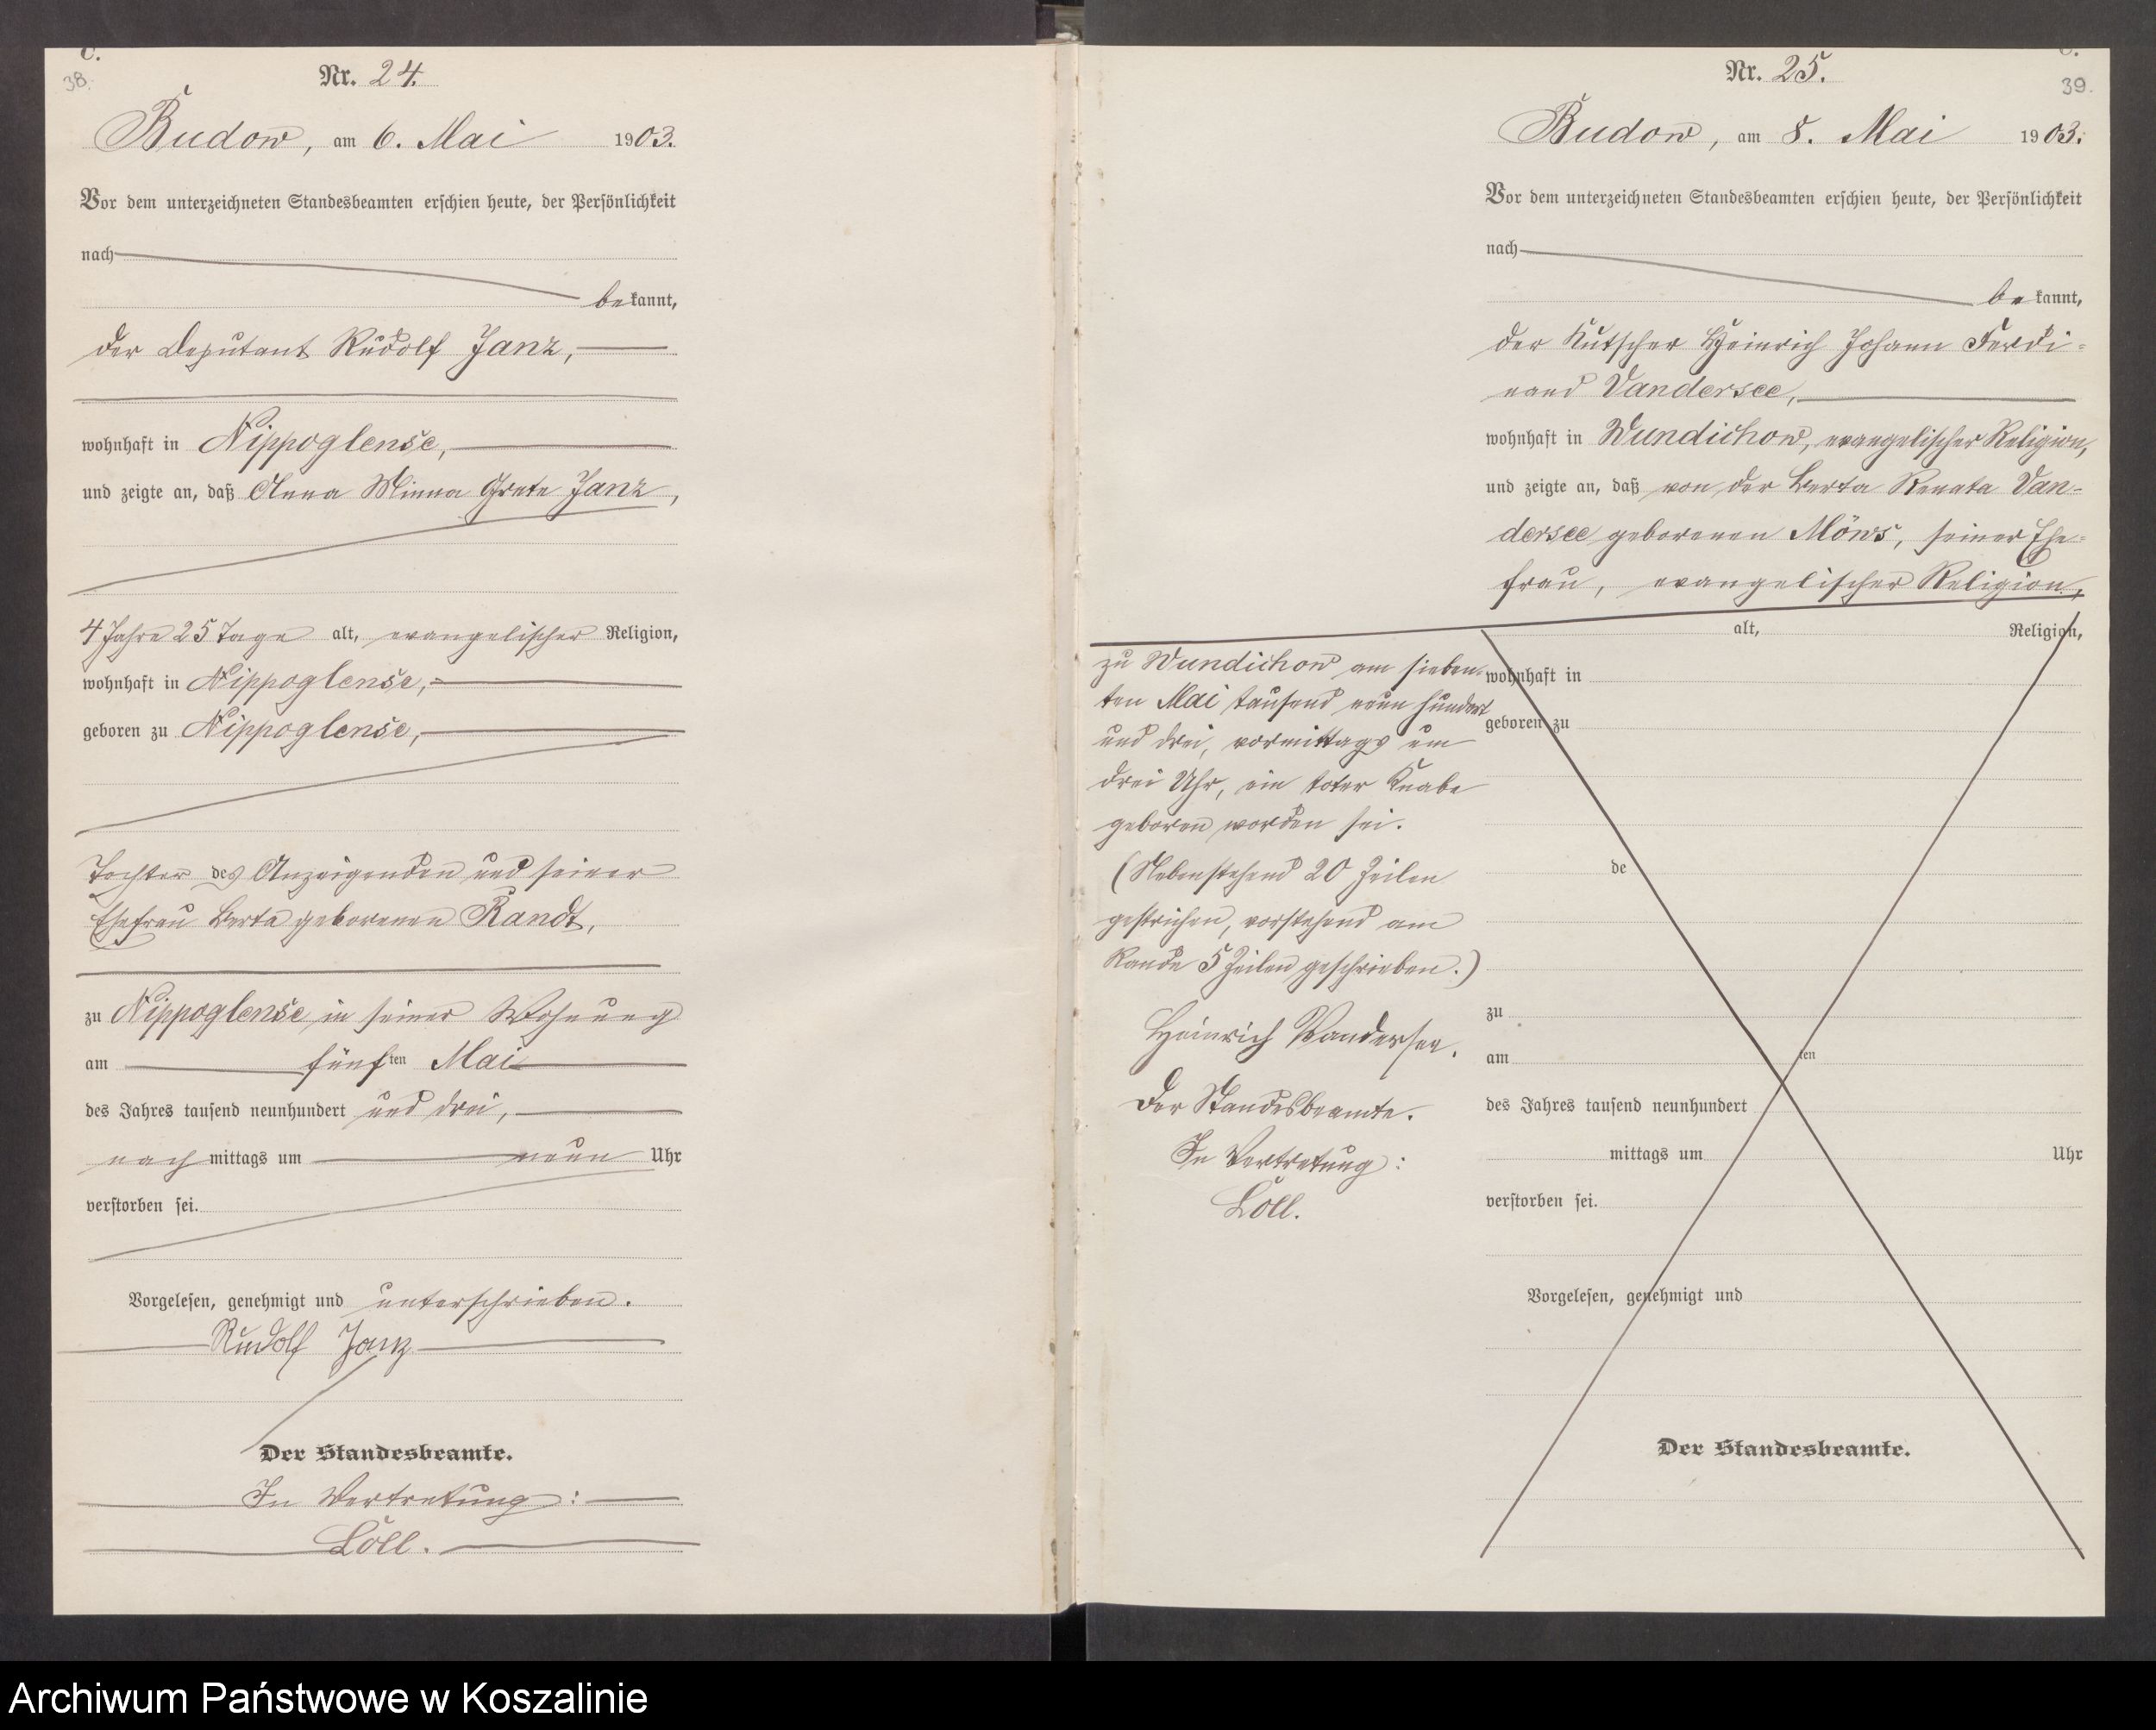 C.
38.
Nr. 24.
Budow, am 6. Mai 1903.
Vor dem unterzeichneten Standesbeamten erschien heute, der Persönlichkeit
nach
bekannt,
der Deputant Rudolf Janz,
wohnhaft in Nippoglense,
und zeigte an, daß Anna Minna Grete Janz,
4 Jahre 25 Tage alt, evangelischer Religion,
wohnhaft in Nippoglense,
geboren zu Nippoglense,
Tochter des Anzeigenden und seiner
Ehefrau Berta geborenen Randt,
zu Nippoglense in seiner Wohnung
am fünften Mai
des Jahres tausend neunhundert und drei,
nachmittags um neun Uhr
verstorben sei.
Vorgelesen, genehmigt und unterschrieben.
Rudolf Janz
Der Standesbeamte.
In Vertretung:
Löll.
C.
39.
Nr. 25.
Budow, am 8. Mai 1903.
Vor dem unterzeichneten Standesbeamten erschien heute, der Persönlichkeit
nach
bekannt,
der Kutscher Heinrich Johann Ferdi-
nand Vandersee,
wohnhaft in Wundichow, evangelischer Religion,
und zeigte an, daß von der Berta Renata Van-
dersee geborenen Möws, seiner Ehe-
frau, evangelischer Religion,
zu Wundichow am sieben-
ten Mai tausend neun hundert
und drei, vormittags um
drei Uhr, ein toter Knabe
geboren worden sei.
(Nebenstehend 20 Zeilen
gestrichen, vorstehend am
Rande 5 Zeilen geschrieben.)
Heinrich Vandersee.
Der Standesbeamte.
In Vertretung:
Löll.
alt, Religion,
wohnhaft in
geboren zu
de
zu
am ten
des Jahres tausend neunhundert
mittags um Uhr
verstorben sei.
Vorgelesen, genehmigt und
Der Standesbeamte.
Archiwum Państwowe w Koszalinie